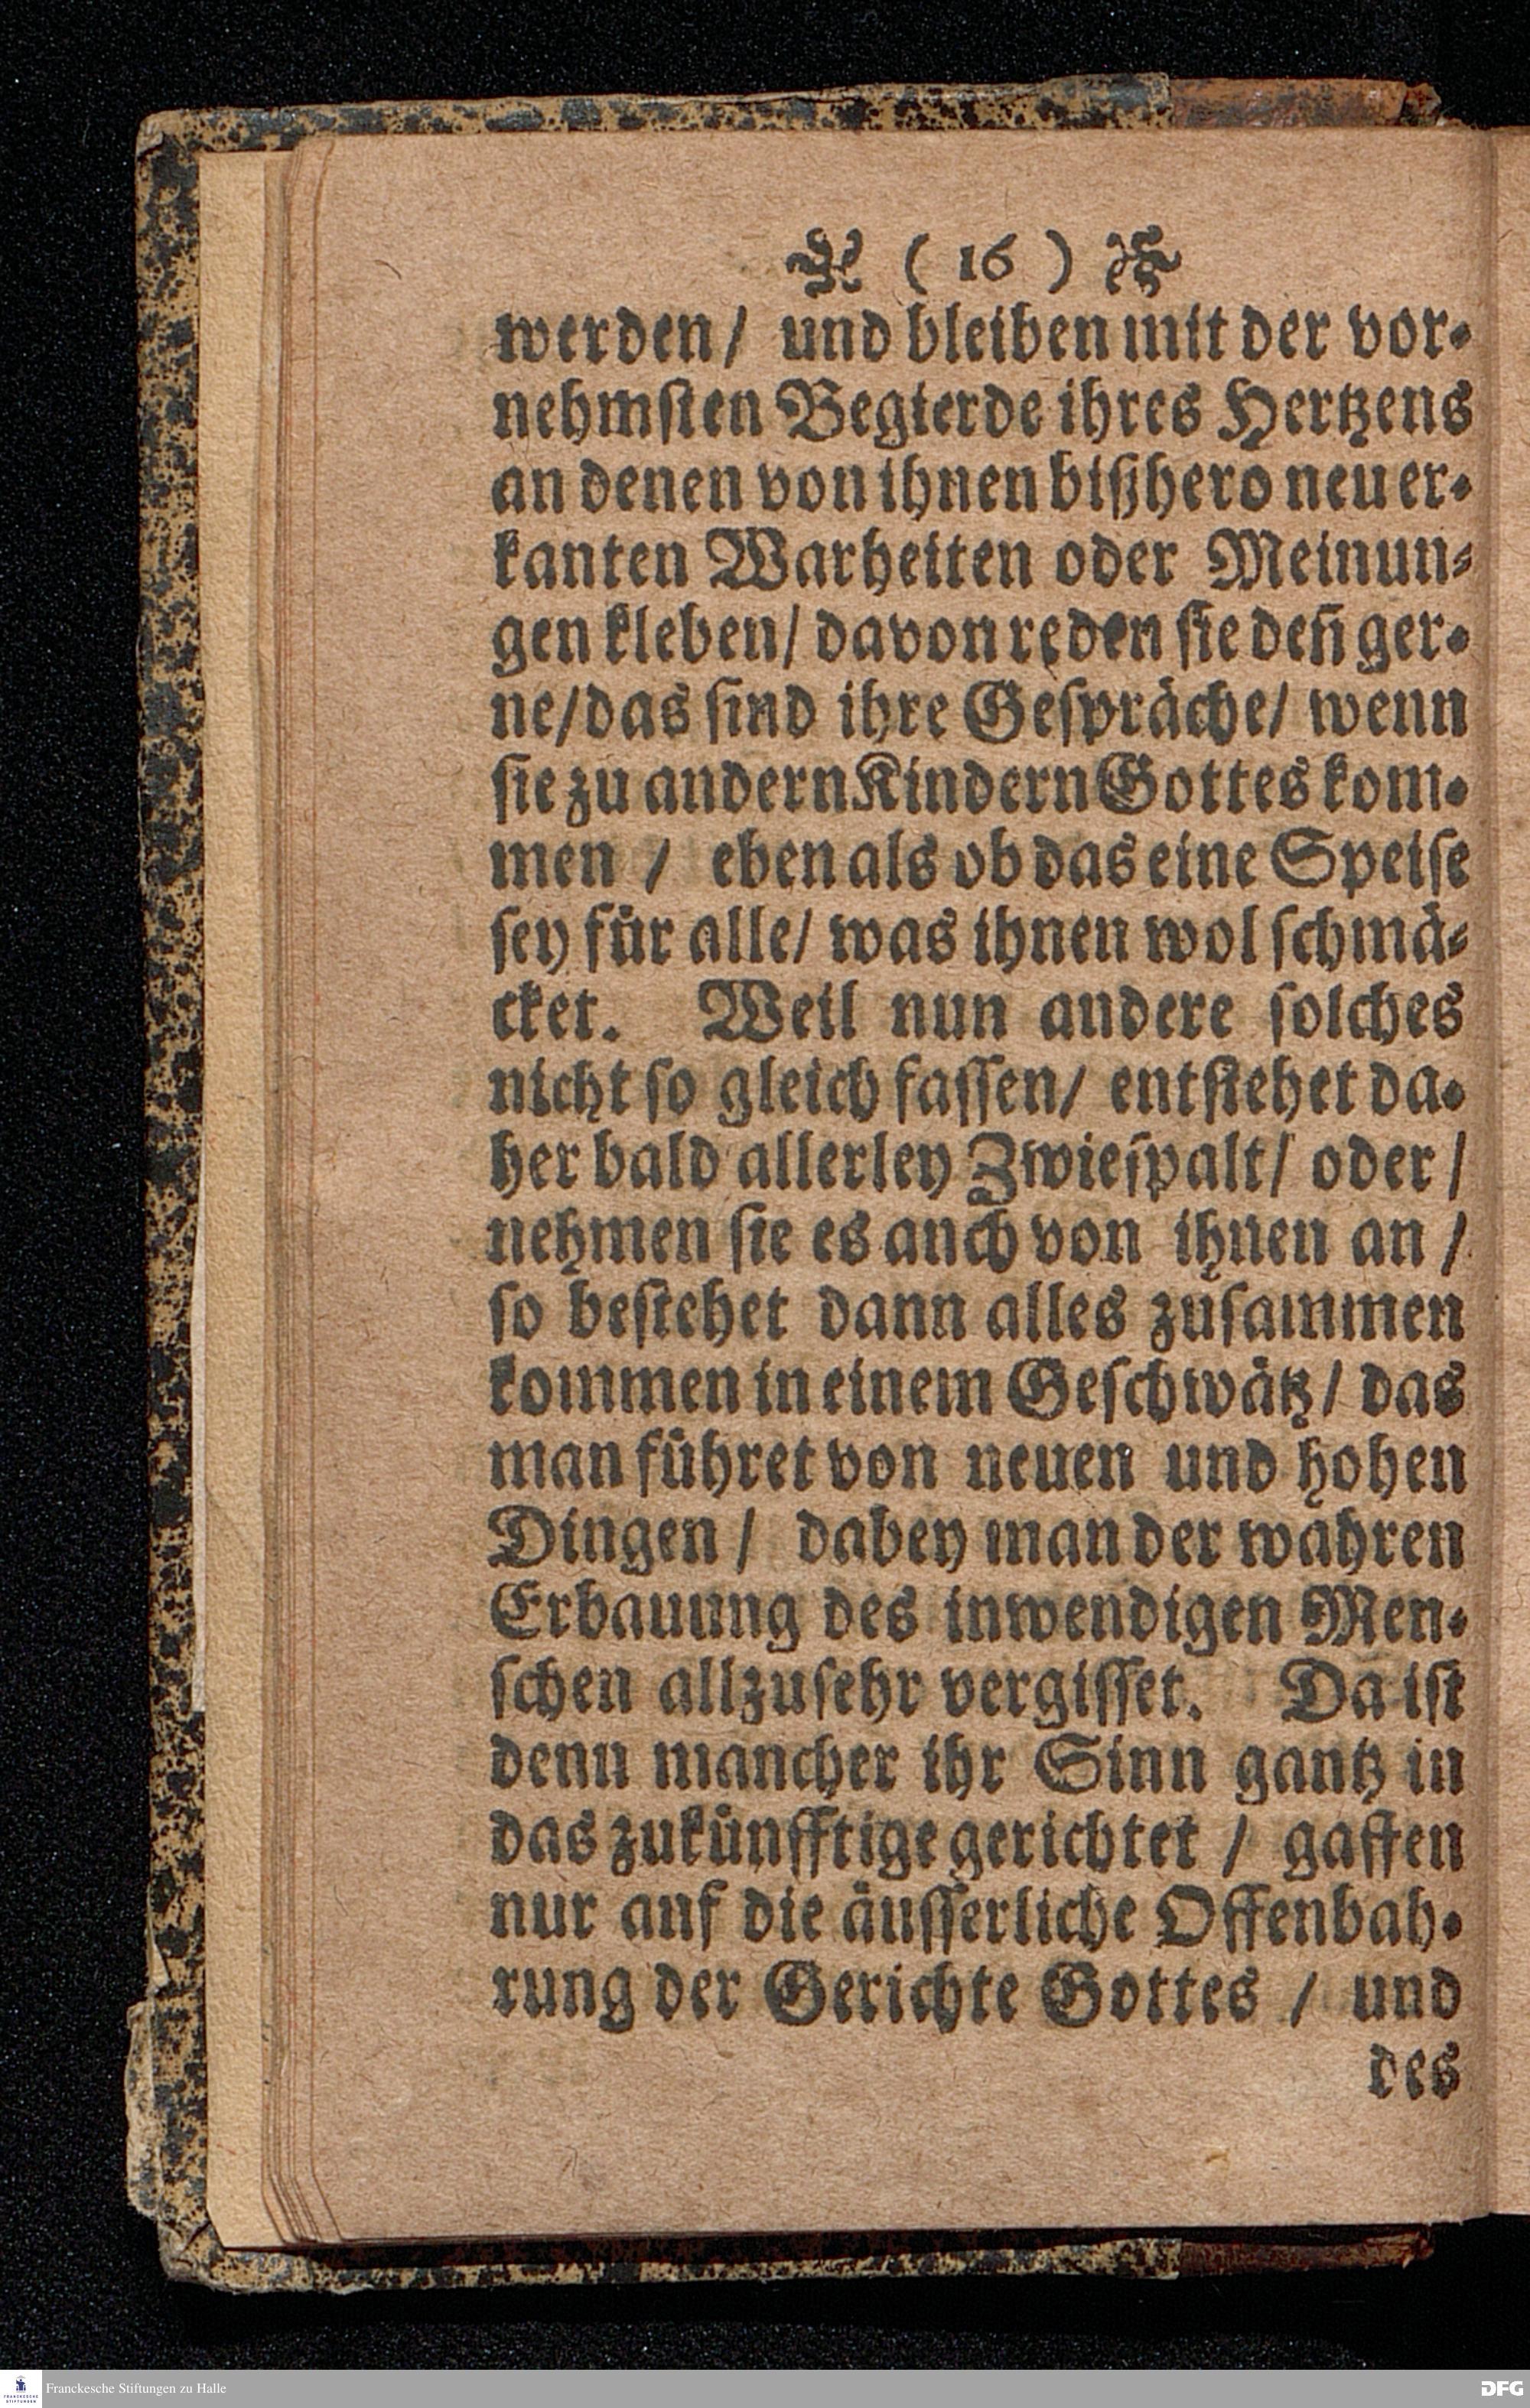 ( 16 )
werden/ und bleiben mit der vor-
nehmſten Begierde ihres Hertzens
an denen von ihnen bißhero neu er-
kanten Warheiten oder Meinun-
gen kleben/ davon reden ſie deñ ger-
ne/das ſind ihre Geſpräche/ wenn
ſie zu andern Kindern Gottes kom-
men / eben als ob das eine Speiſe
ſey für alle/ was ihnen wol ſchmä-
cket. Weil nun andere ſolches
nicht ſo gleich faſſen/ entſtehet da-
her bald allerley Zwieſpalt/ oder /
nehmen ſie es anch von ihnen an /
ſo beſtehet dann alles zuſammen
kommen in einem Geſchwätz/ das
man führet von neuen und hohen
Dingen / dabey man der wahren
Erbauung des inwendigen Men-
ſchen allzuſehr vergiſſet. Da iſt
denn mancher ihr Sinn gantz in
das zukünfftige gerichtet / gaffen
nur auf die äuſſerliche Offenbah-
rung der Gerichte Gottes / und
des
Franckesche Stiftungen zu Halle
FRANCKESCHE
STIFTUNGEN
DFG